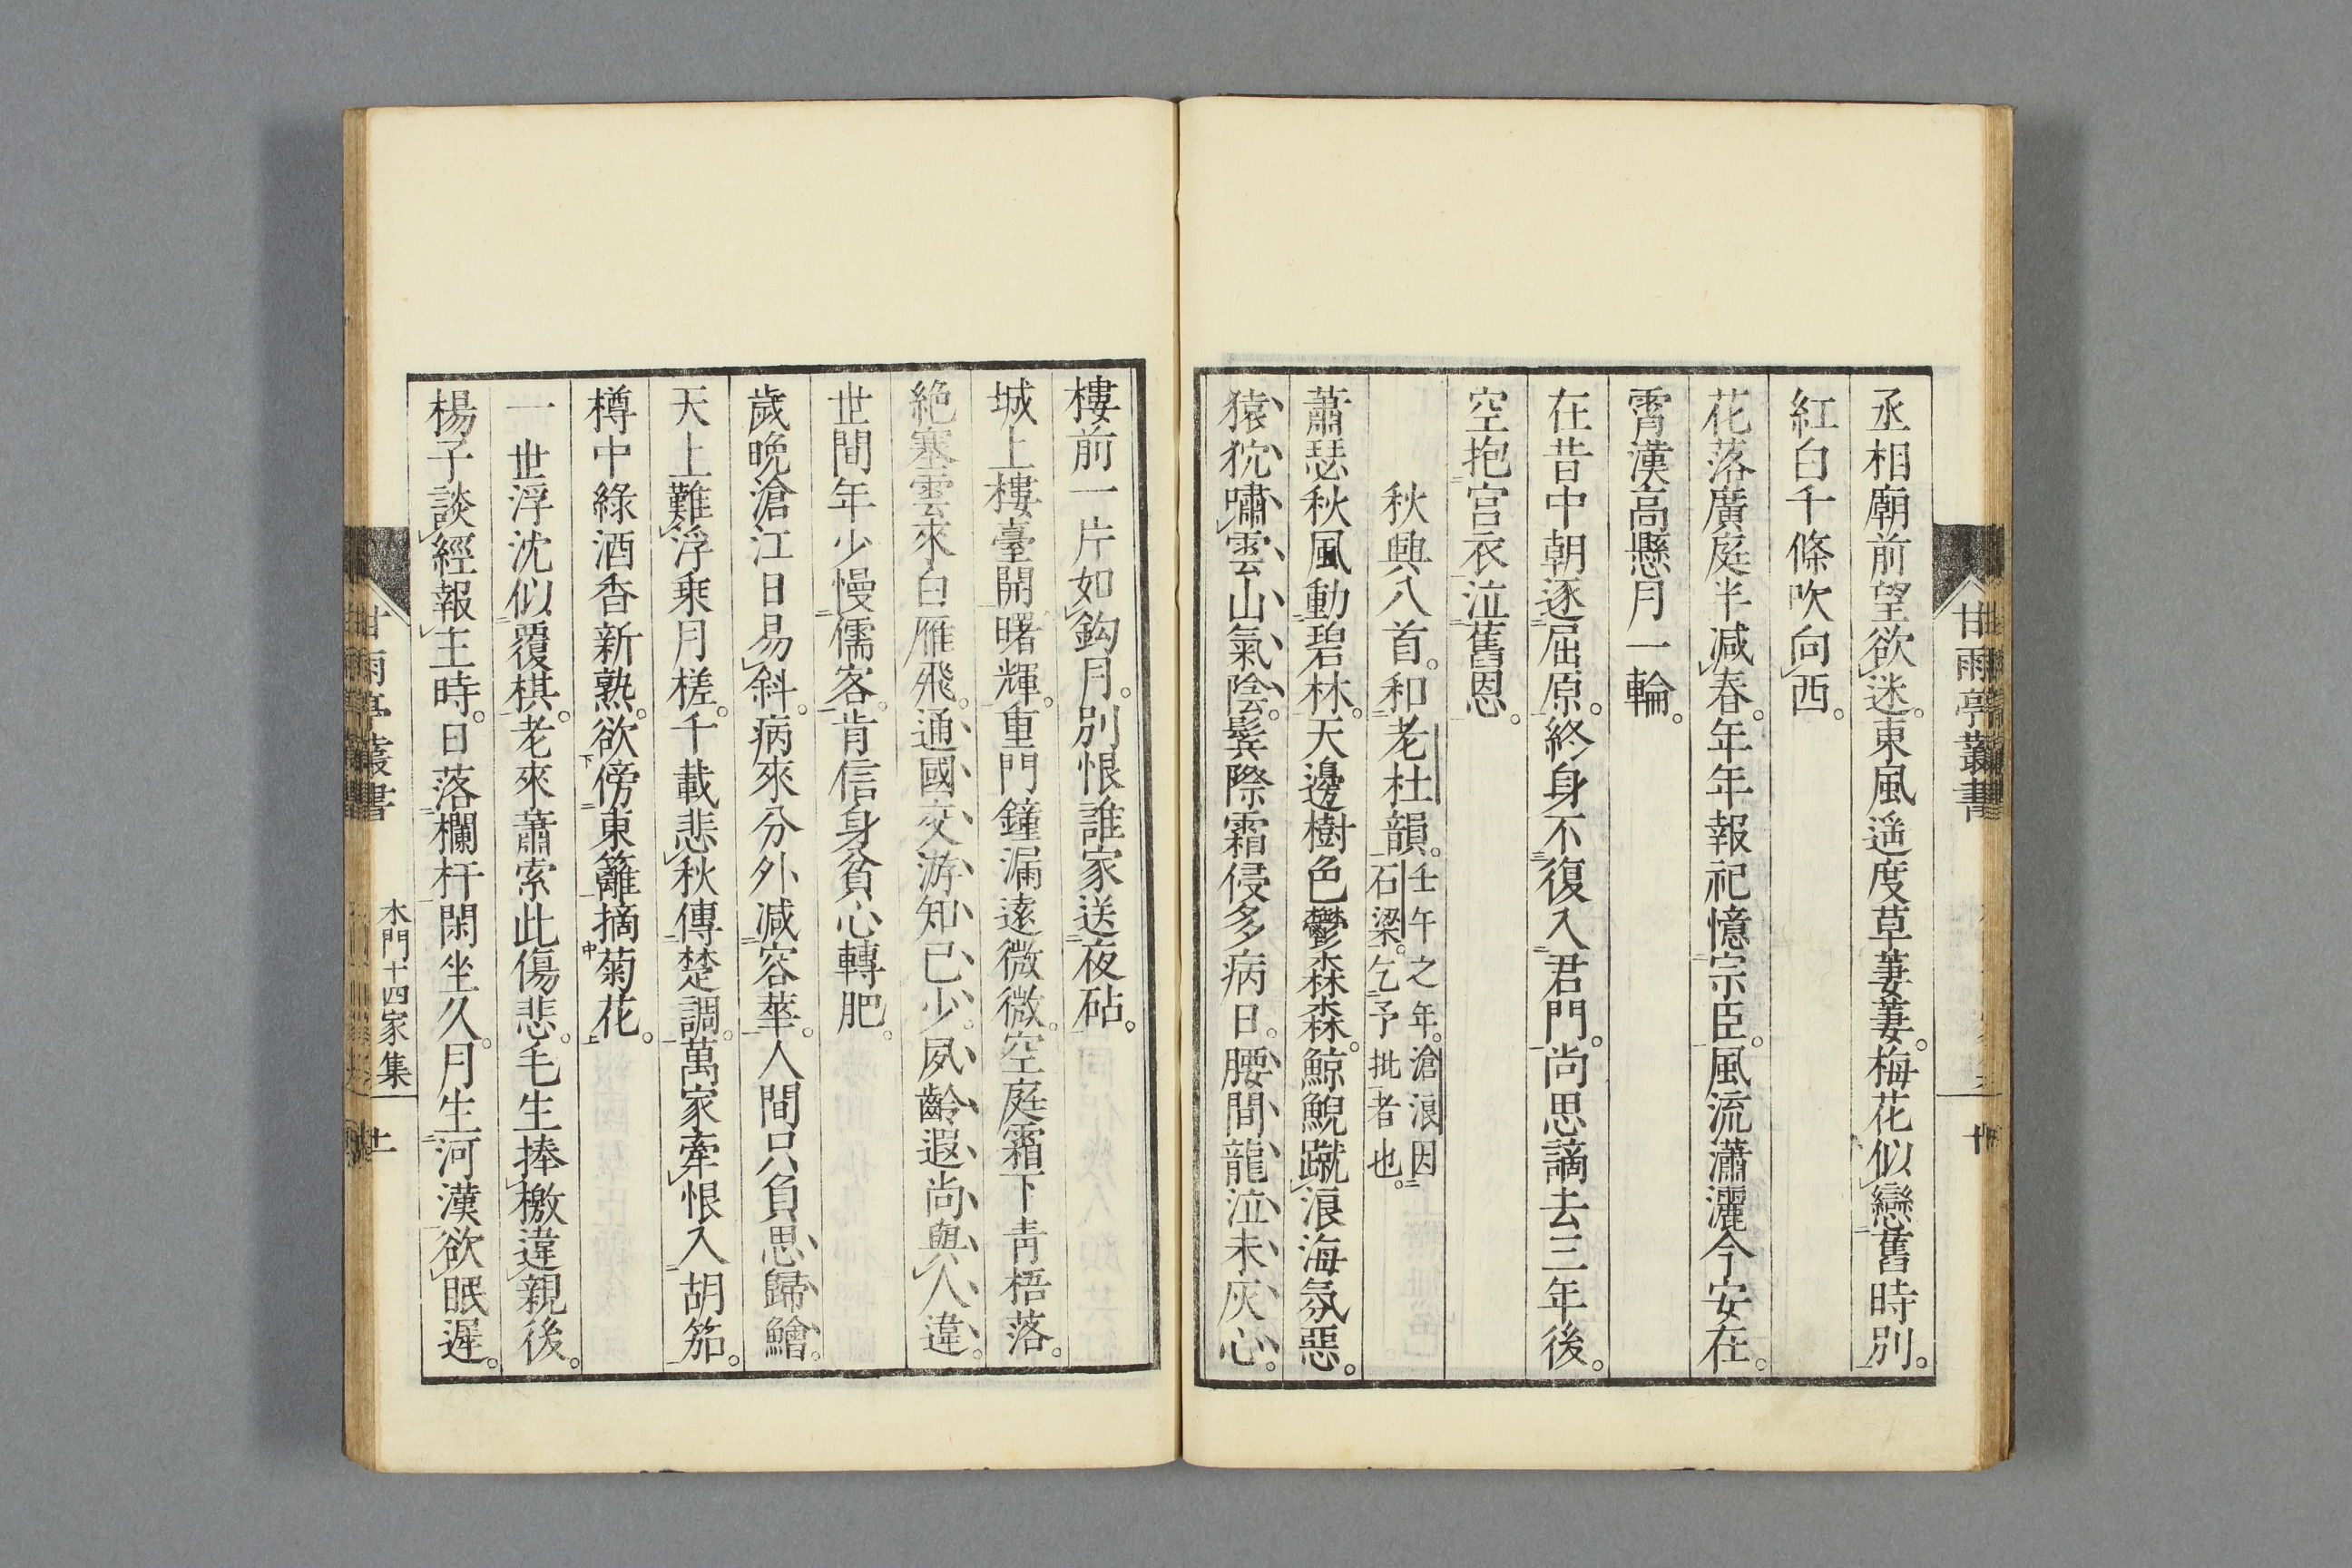 甘雨亭叢書
丞相廟前望欲迷。東風遥度草萋萋。梅花似戀舊時別。
紅白千條吹向西。
花落廣庭半減春。年年報祀憶宗臣。風流瀟灑今安在。
霄漢高懸月一輪。
在昔中朝逐屈原。終身不復入君門。尚思謫去三年後。
空抱宮衣泣舊恩。
秋興八首。和老杜韻。壬午之年。滄浪因石梁。乞予批者也。
蕭瑟秋風動碧林。天邊樹色鬱森森。鯨鯢蹴浪海氛惡。
猿狖嘯雲山氣陰。鬂際霜侵多病日。腰間龍泣未灰心。
樓前一片如鈎月。別恨誰家送夜砧。
城上樓臺開曙輝。重門鐘漏遠微微。空庭霜下靑梧落。
絶塞雲來白雁飛。通國交游知己少。夙齡遐尚與人違。
世間年少慢儒客。肯信身貧心轉肥。
歲晩滄江日易斜。病來分外減容華。人間只負思歸鱠。
天上難浮乗月槎。千載悲秋傳楚調。萬家牽恨入胡笳。
樽中綠酒香新熟。欲下傍二東籬一摘中菊花上。
一世浮沈似覆棋。老來蕭索此傷悲。毛生捧檄違親後。
楊子談經報主時。日落欄杆閑坐久。月生河漢欲眠遲。
甘雨亭叢書 木門十四家集 廿一